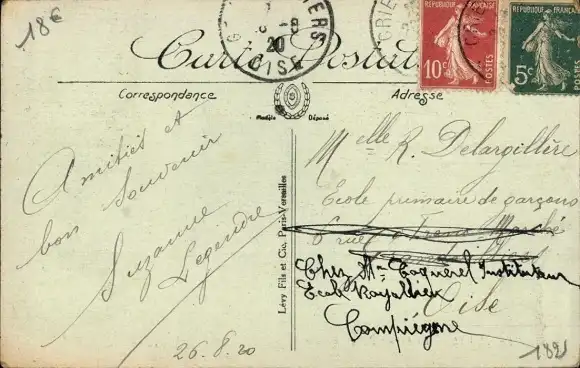 18€
Carte Postale
RÉPUBLIQUE FRANÇAISE
10c
POSTES
RÉPUBLIQUE FRANÇAISE
5c
POSTES
20
OISE
Correspondance
Adresse
Modèle Déposé
Amitiés et
bon souvenir
Suzanne
Legendre
26.8.20
Lévy Fils et Cie, Paris-Versailles
Melle R. Delargillière
Ecole primaire de garçons
6 rue Marché
Chez Mr Coquerel Instituteur
Ecole
Oise
Compiègne